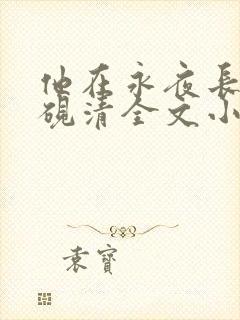 他在永夜長
硯清全文小
袁寶